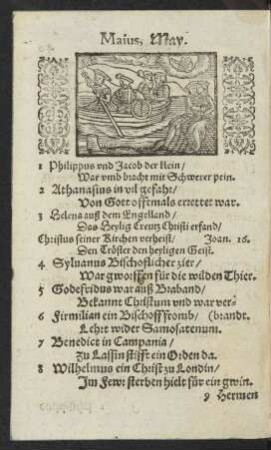 Maius, May.
1 Philippus vnd Jacob der klein /
War vmb bracht mit Schwerer pein.
2 Athanasius in vil gefahr /
Von Gott offtmals errettet war.
3 Helena auß dem Engelland /
Das Heylig Creutz Christi erfand /
Christus seiner Kirchen verheist / Joan. 16.
Den Tröster den heyligen Geist.
4 Syluanus Bischofflicher zier /
War gworffen für die wilden Thier.
5 Godefridus war auß Braband /
Bekannt Christum vnd war ver⸗
6 Firmilian ein Bischoff fromb / (brandt.
Lehrt wider Samosatenum.
7 Benedict in Campania /
Zu Cassin stifft ein Orden da.
8 Wilhelmus ein Christ zu Londin /
Im Fewr sterben hielt für ein gwin.
9 Hermen